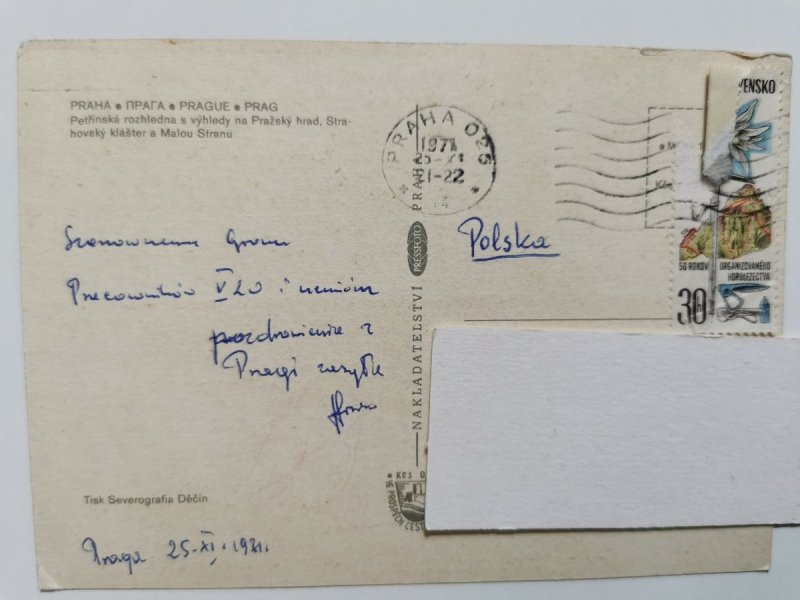 PRAHA • ПРАГА • PRAGUE • PRAG
Petřínská rozhledna s výhledy na Pražský hrad, Stra-
hovský klášter a Malou Stranu
Szanownemu Gronu
Pracowników V LO i uczniów
pozdrowienia z
Pragi zasyła
Tisk Severografia Děčín
Praga 25-XI.1971.
NAKLADATELSTVÍ PRESSFOTO PRAHA
Kčs
VE PROSPĚCH
PRAHA 025
1971
25-XI
21-22
Polska
VENSKO
50 ROKOV ORGANIZOVANÉHO
HOROLEZECTVA
30